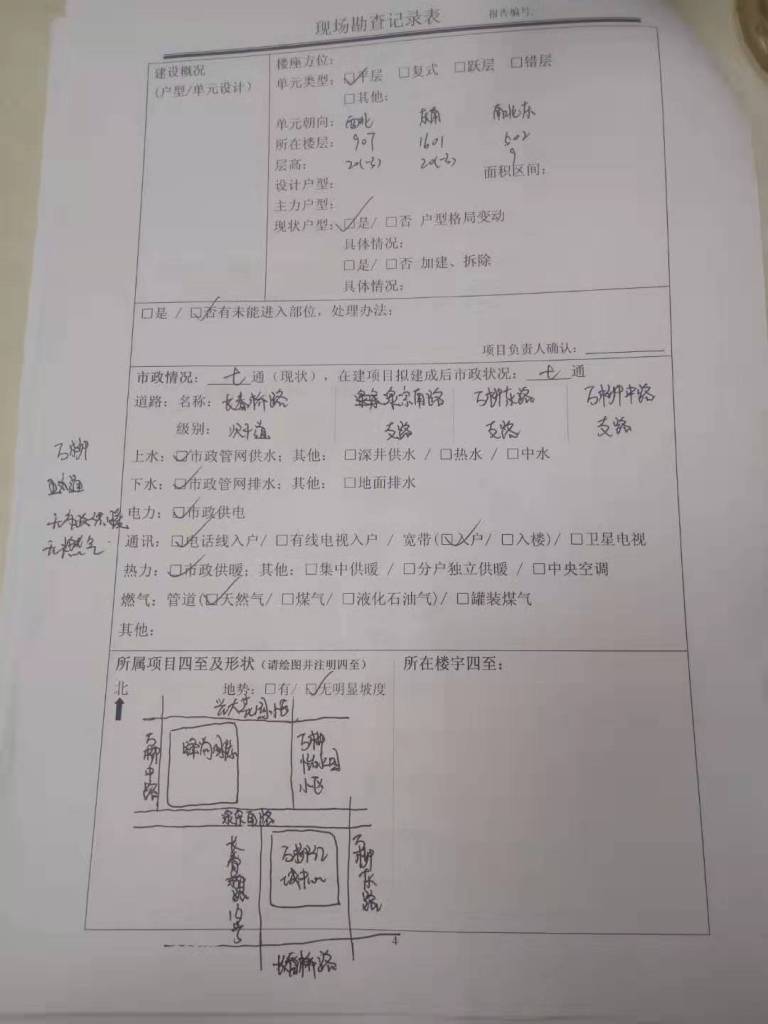 现场勘查记录表
报告编号:
建设概况
(户型/单元设计)
楼座方位:
单元类型: ☑平层 □复式 □跃层 □错层
□其他:
单元朝向: 西北 东南 南北东
所在楼层: 907 1601 502
层高: 20(-3) 20(-3) 9
面积区间:
设计户型:
主力户型:
现状户型: ☑是/ □否 户型格局变动
具体情况:
□是/ □否 加建、拆除
具体情况:
□是 / ☑否有未能进入部位,处理办法:
项目负责人确认:
市政情况: 七 通(现状),在建项目拟建成后市政状况: 七 通
道路: 名称: 长春桥路 泉宗南路 万柳东路 万柳中路
级别: 次干道 支路 支路 支路
上水: ☑市政管网供水; 其他: □深井供水 / □热水 / □中水
下水: ☑市政管网排水; 其他: □地面排水
电力: ☑市政供电
通讯: ☑电话线入户/ □有线电视入户 / 宽带(☑入户/ □入楼)/ □卫星电视
热力: ☑市政供暖; 其他: □集中供暖 / □分户独立供暖 / □中央空调
燃气: 管道(☑天然气/ □煤气/ □液化石油气)/ □罐装煤气
其他:
万柳
五通
无市政供暖
无燃气
所属项目四至及形状(请绘图并注明四至)
所在楼宇四至:
北
地势: □有/ ☑无明显坡度
小区
万柳中路
万柳
小区
泉宗南路
万柳亿
城中心
万柳东路
16号
长春桥路
4